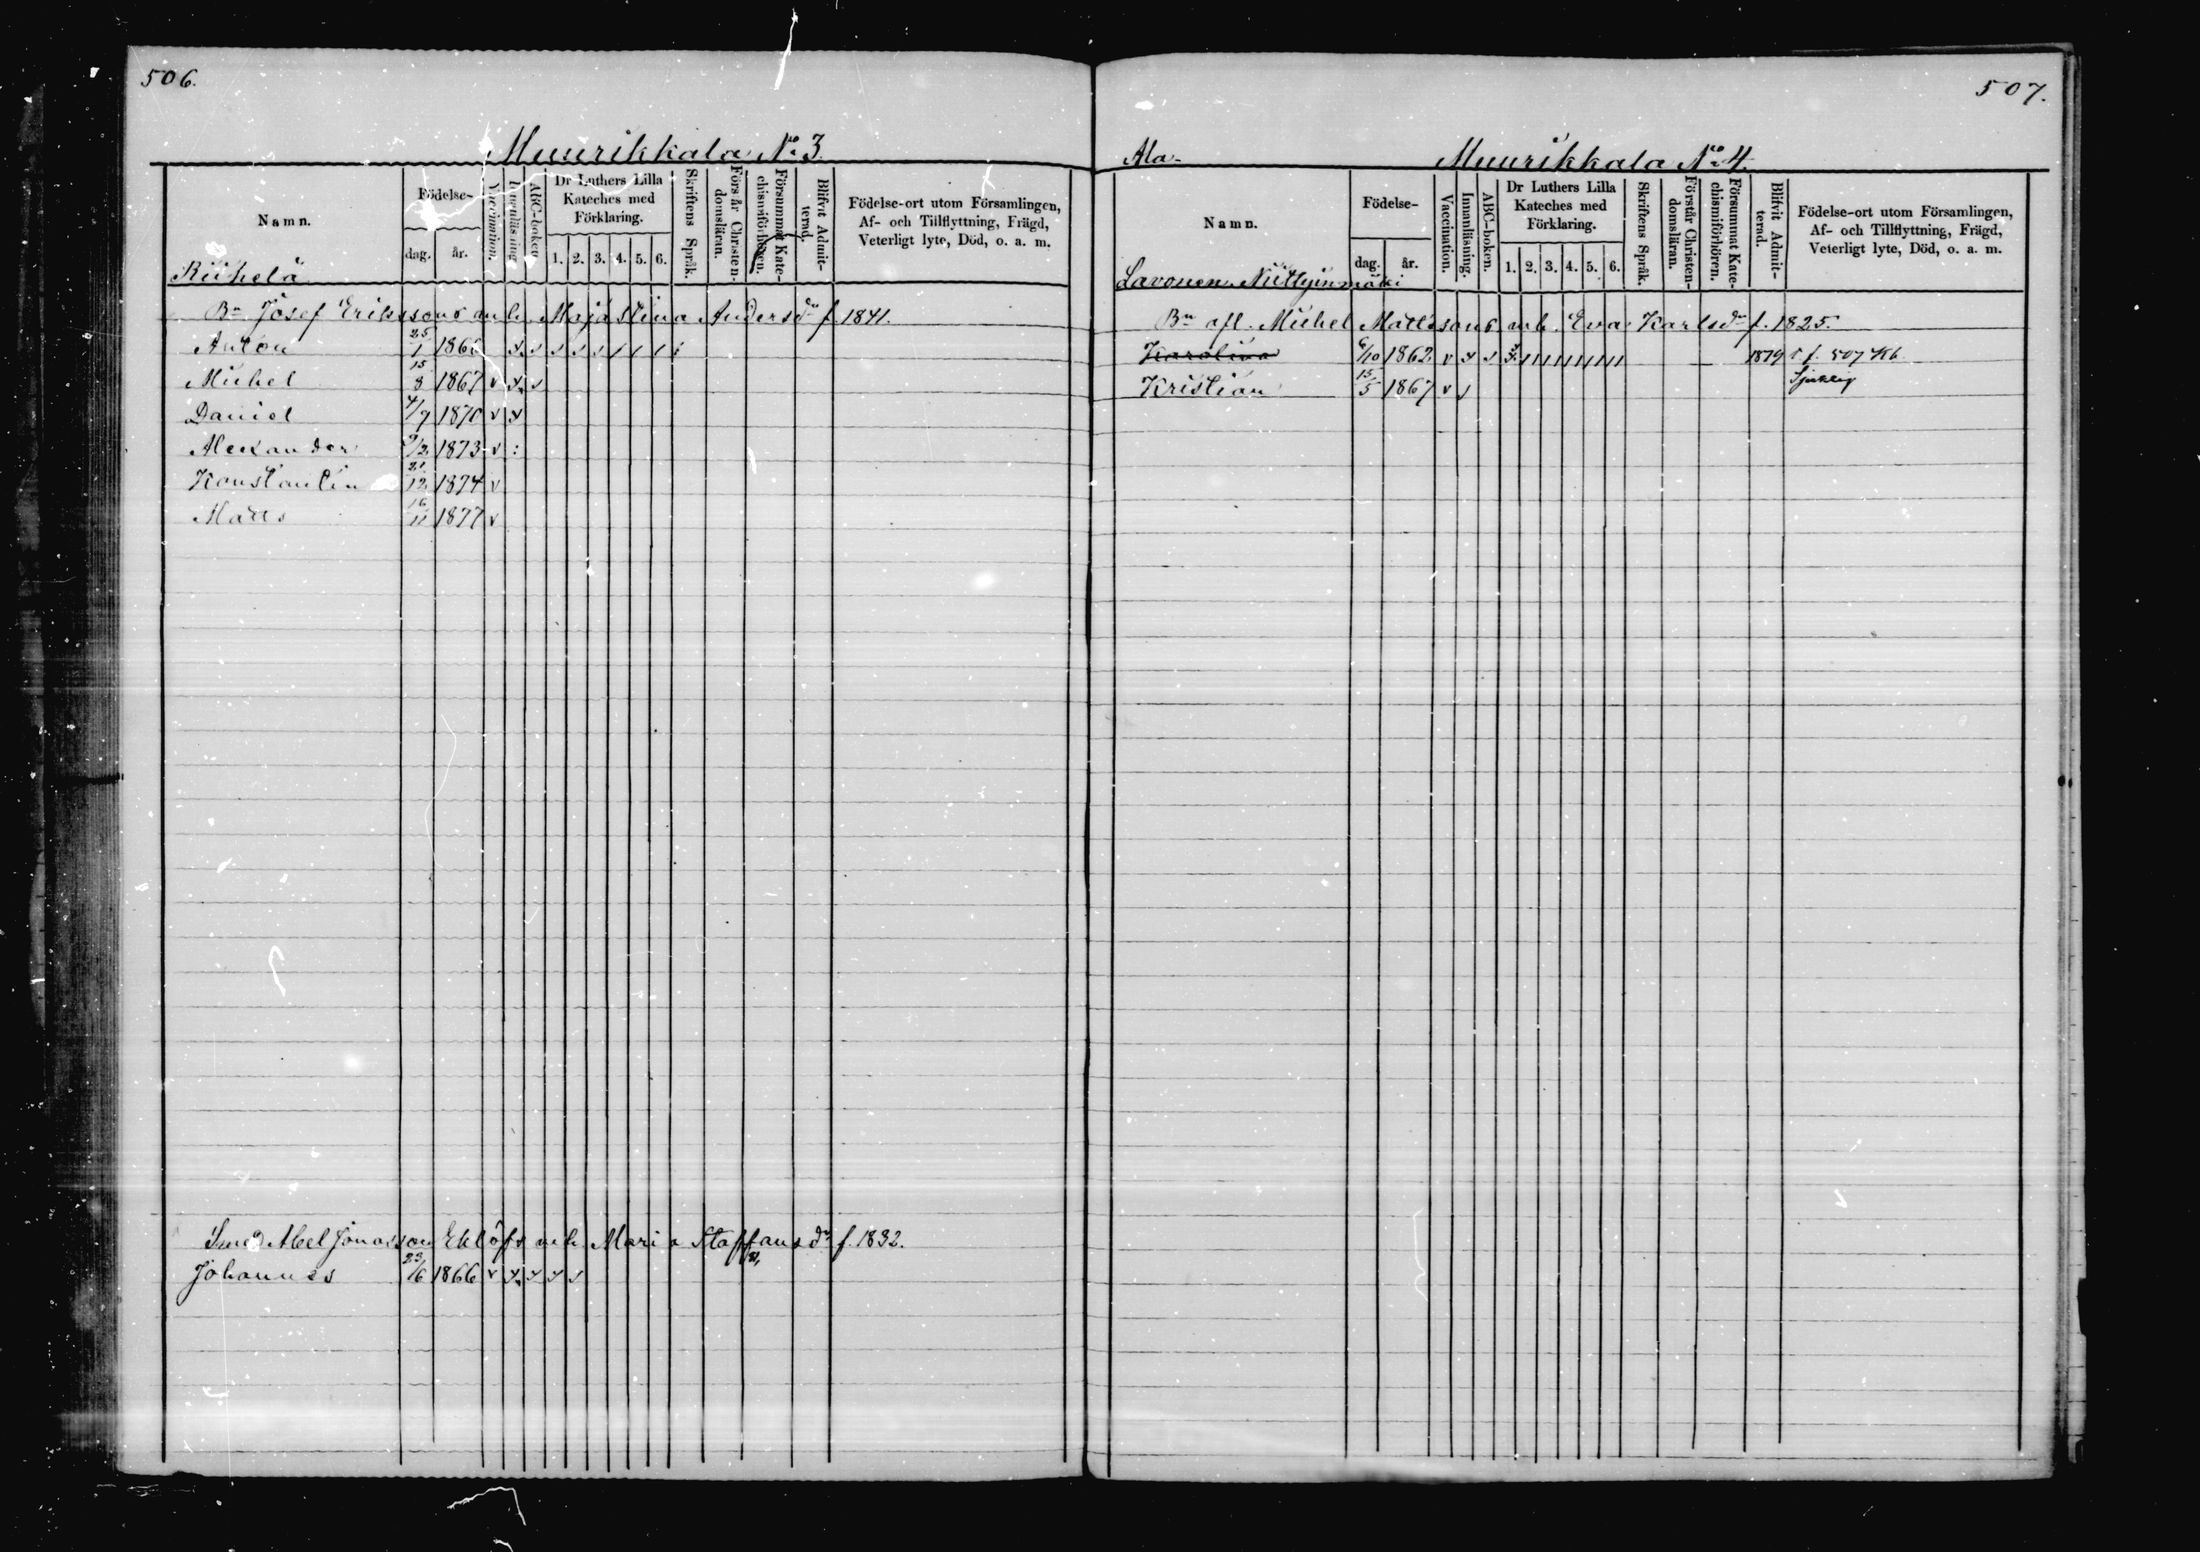 506.
Muurikkala No 3.
Namn.
Födelse-
dag. år.
Vaccination.
Innanläsning.
ABC-boken.
Dr Luthers Lilla Kateches med Förklaring.
1. 2. 3. 4. 5. 6.
Skriftens Språk.
Förstår Christen-domsläran.
Försummat Kate-chismiförhören.
Blifvit Admit-terad.
Födelse-ort utom Församlingen,
Af- och Tillflyttning, Frägd,
Veterligt lyte, Död, o. a. m.
Riihelä
Bn Josef Erikssons m h. Maja Stina Andersdr f. 1841.
Anton 25/1 186
Mickel 15/8 1867 v
Daniel 4/7 1870 v
Alexander 9/2 1873 v
Konstantin 21/12 1874 v
Matts 16/11 1877 v
Smed Abel Jonasson Eklöfs m h. Maria Staffansdr f. 1832.
Johannes 23/6 1866 v
507.
Ala- Muurikkala No 4.
Namn.
Födelse-
dag. år.
Vaccination.
Innanläsning.
ABC-boken.
Dr Luthers Lilla Kateches med Förklaring.
1. 2. 3. 4. 5. 6.
Skriftens Språk.
Förstår Christen-domsläran.
Försummat Kate-chismiförhören.
Blifvit Admit-terad.
Födelse-ort utom Församlingen,
Af- och Tillflyttning, Frägd,
Veterligt lyte, Död, o. a. m.
Lavonen Niittyinmäki
Bn afl. Mickel Mattssons m h. Eva Karlsdr f. 1825.
Karolina 6/10 1862 v 1879 507 Kb
Kristian 15/5 1867 v Sjuklig